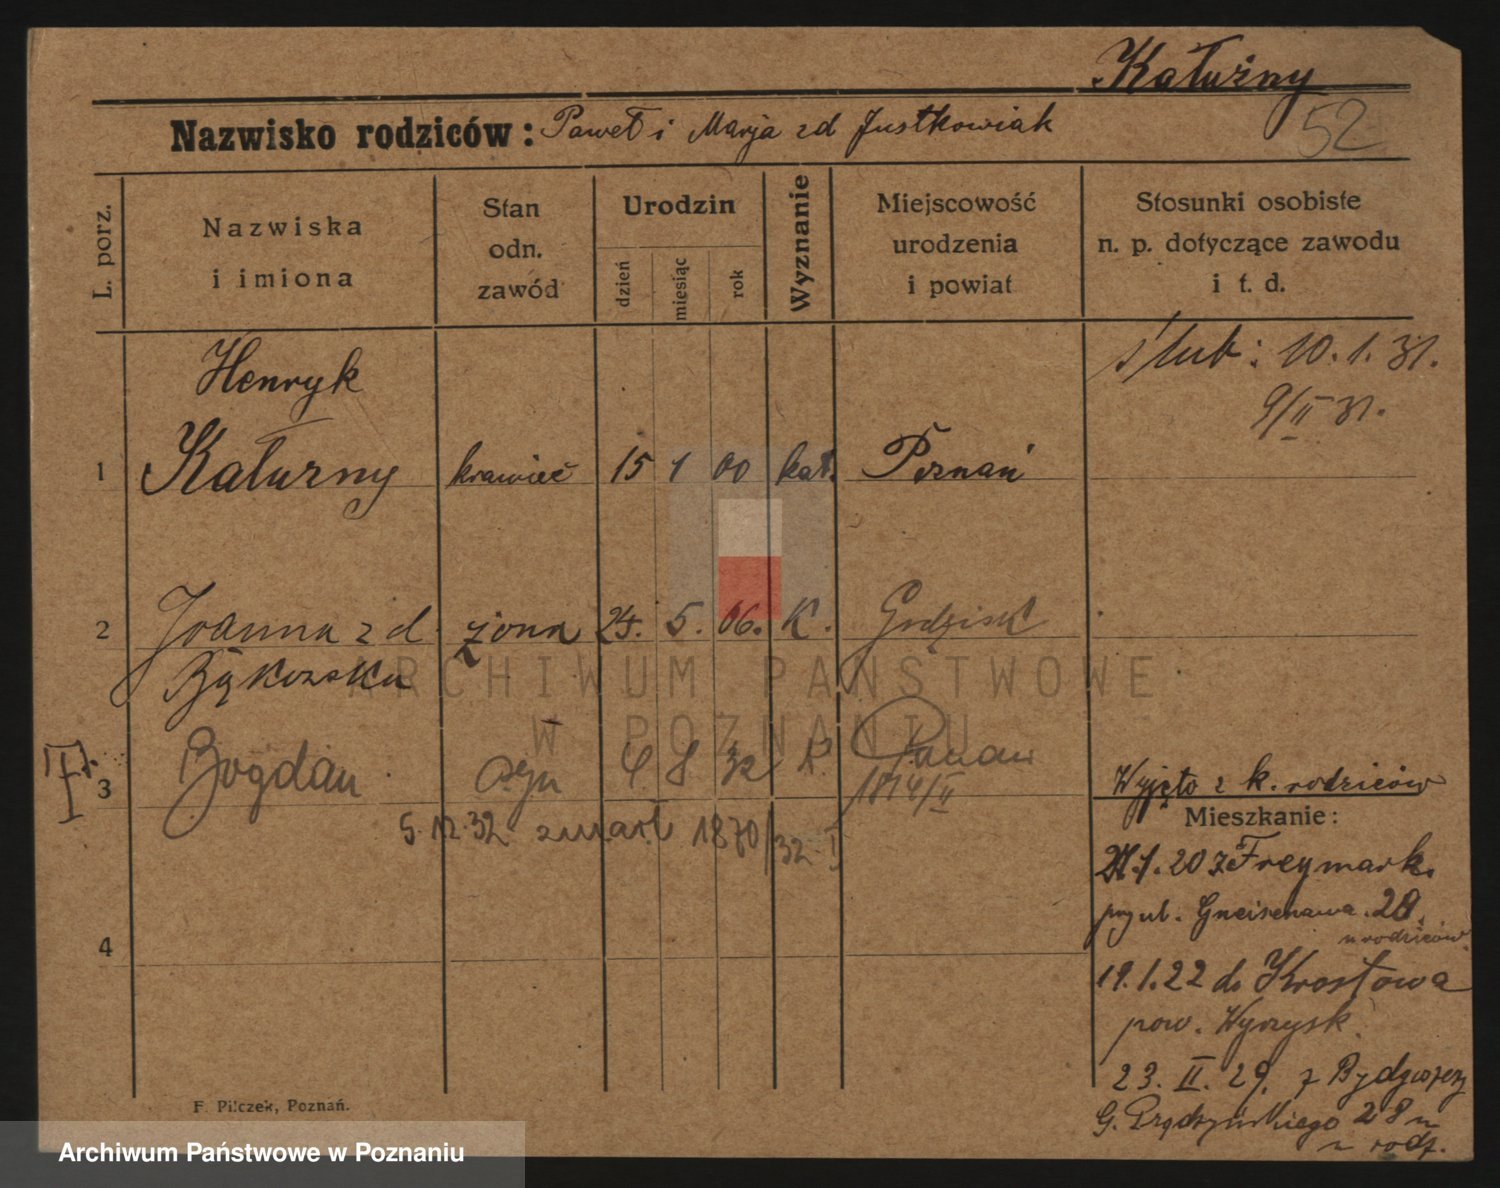 Kałużny
52
Nazwisko rodziców: Paweł i Marja zd Justkowiak
L. porz.
Nazwiska i imiona
Stan odn. zawód
Urodzin
dzień
miesiąc
rok
Wyznanie
Miejscowość urodzenia i powiat
Stosunki osobiste n. p. dotyczące zawodu i t. d.
ślub: 10.1.31.
9/II 31.
Henryk
1 Kałużny krawiec 15 1 00 kat. Poznań
2 Joanna z d. żona 24. 5. 06. K. Grodzisk
Bąkowska
ARCHIWUM PAŃSTWOWE
W POZNANIU
3 Bogdan syn 4 8 32 K Poznań
1814/II
5.12.32 zmarł 1870/32 I
Wyjęto z k. rodziców
Mieszkanie:
21.1.20 z Freymark.
przy ul. Gneisenawa 28.
u rodziców
19.1.22 do Krostowa
pow. Wyrzysk
23. II. 29. z Bydgoszczy
G. Prądzyńskiego 28
u rodz.
4
F. Pilczek, Poznań.
Archiwum Państwowe w Poznaniu